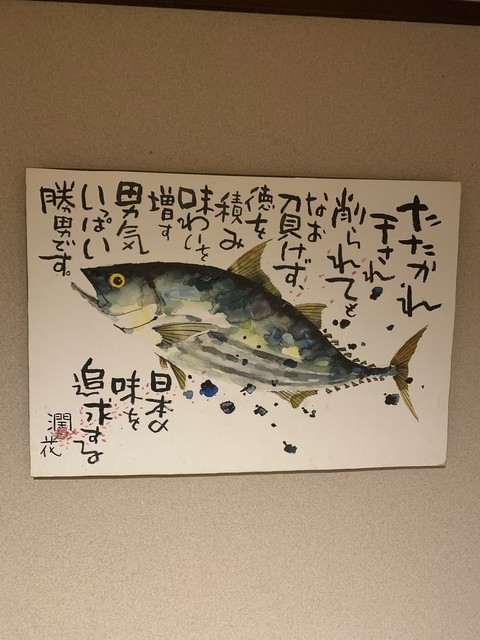 たたかれ
干され
削られても
なお
刀負けず、
徳を
積み
味わいを
増す
男気
いっぱい
勝男です。
日本の
味を
追求する
潤花